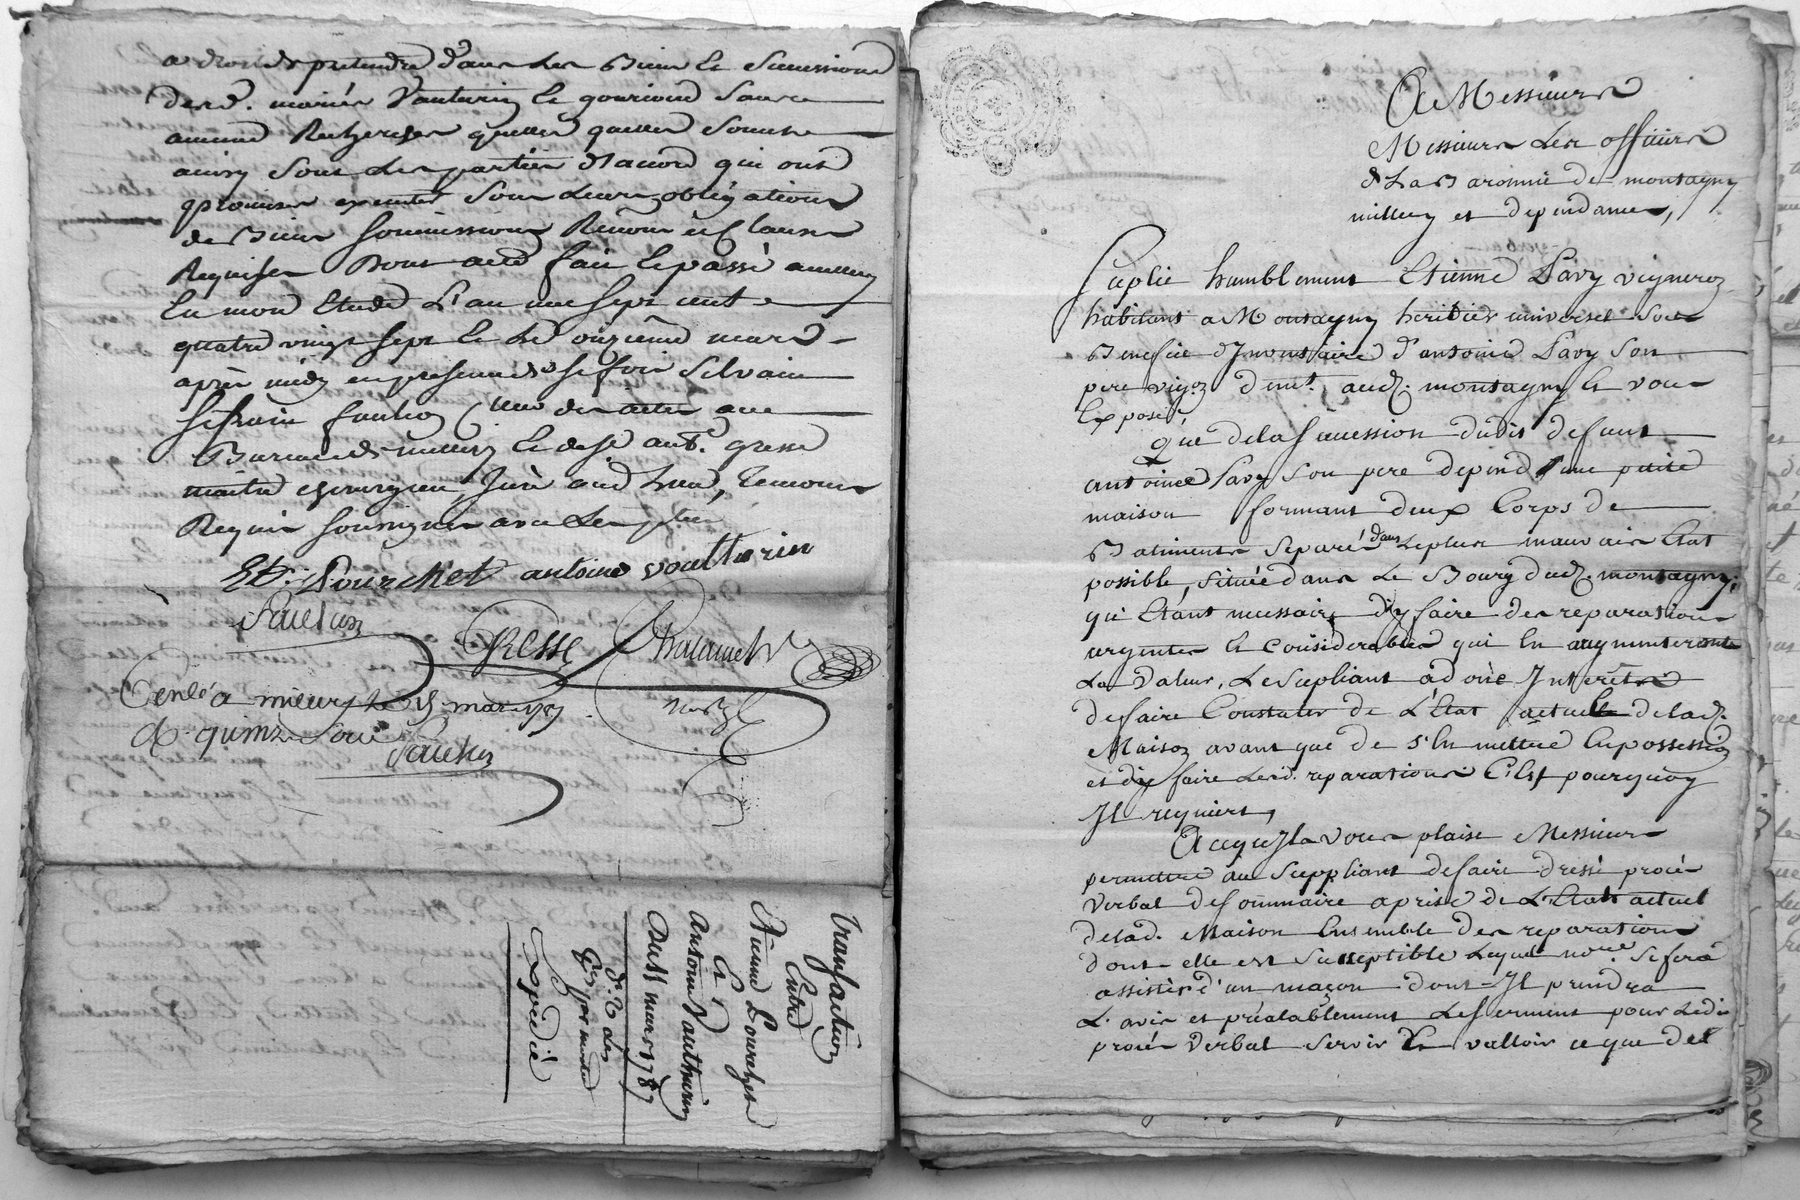 a droit de pretendre dans les Biens et Successions
des d. mariés Vauturin et
quelles soient
ainsy sont les parties d'accord qui ont
promises executer sous leurs obligations
de Biens soumissions Renon et Clauses
Requises Dont acte fait et passé a millery
En mon Etude L'an mil sept cent
quatre vingt sept et le onzieme mars
après midy en presence de Silvain
des actes au
Bureau de millery et de Sr ant. gresse
maitre chirurgien Juré aud Lieu, Temoins
Requis soussignes avec Les pties
Et. Pourchet antoine voutturin
GRESSE
Conlé a millery le 15 mars 1787
R. quinze Sous
Transaction
Entre
Etienne Pourchet
Et
Antoine Vauthurin
Du 11 mars 1787
Expedié
A Messieurs
Messieurs Les officiers
de La Baronnie de montagny
millery et dependances,
Suplie humblement Etienne Pavy vigneron
habitant a Montagny heritier universel sous
Benefice d'Inventaire d'antoine Pavy son
pere vigon demt. aud. montagny Et vous
Expose
Que de la succession dudit defunt
antoine Pavy son pere depend une petite
maison formant deux Corps de
Batiments separés dans Le plus mauvais Etat
possible, située dans Le Bourg dud. montagny,
qui Etant necessaire d'y faire des reparations
urgentes et considerables qui En augmenteront
La valeur, Le supliant a donc Interêt
de faire Constater de L'Etat actuel de lad.
Maison avant que de s'En mettre En possession
et d'y faire Lesd. reparations C'Est pourquoy
Il requiert,
A ce qu'Il vous plaise Messieurs
permettre au Suppliant de faire dressé procés
verbal de sommaire aprise de L'Etat actuel
de lad. Maison Ensemble des reparations
dont elle est susceptible Lequel se fera
assister d'un maçon dont Il prendra
L'avis et préalablement Le serment pour Ledit
procès verbal servir et valloir ce que de